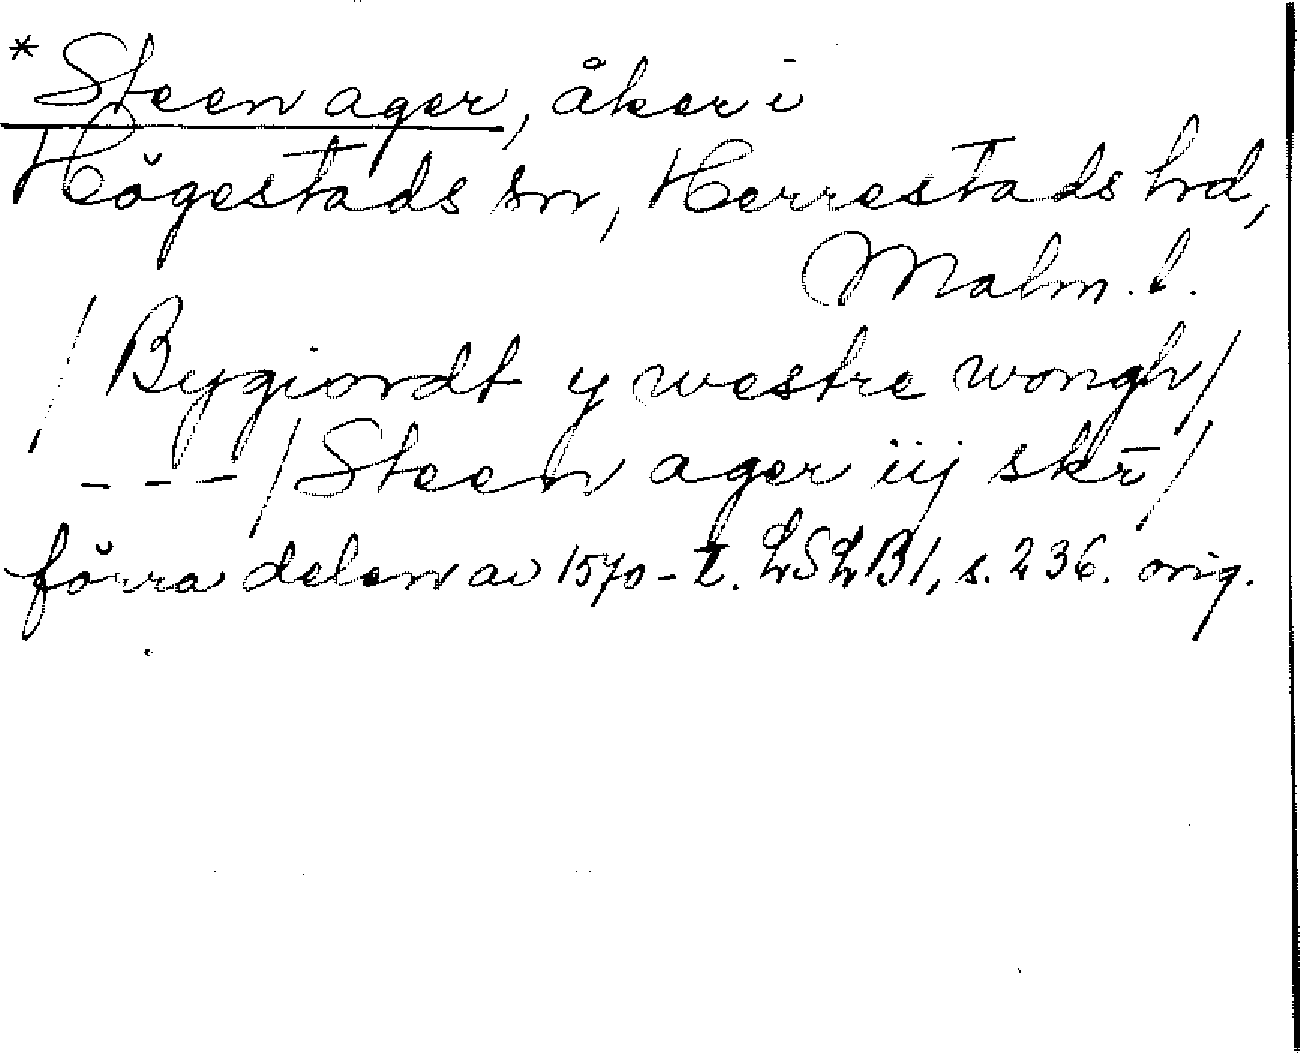 * Steen ager, åker i
Högestads sn, Herrestads hrd,
Malm. l.
/ Bygiordt y westre wongh /
- - - / Steen ager iij skr̄ /
förra delen av 1570-t. LSLB 1, s. 236. orig.